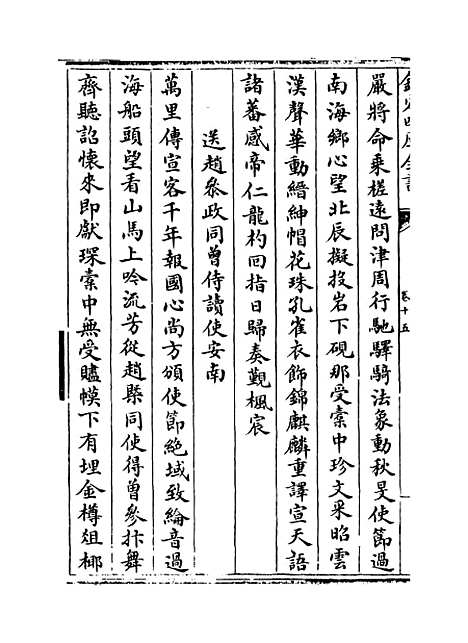 欽定四庫全書
卷十五
嚴將命乘槎遠問津周行馳驛騎法象動秋旻使節過
南海鄉心望北辰擬投岩下硯那受橐中珍文采昭雲
漢聲華動縉紳帽花珠孔雀衣飾錦麒麟重譯宣天語
諸蕃感帝仁龍杓回指日歸奏覲楓宸
送趙叅政同曾侍讀使安南
萬里傳宣客千年報國心尚方頒使節絶域致綸音過
海船頭望看山馬上吟流芳從趙槩同使得曾參抃舞
齊聽詔懷來即獻琛橐中無受贐幙下有埋金樽俎椰